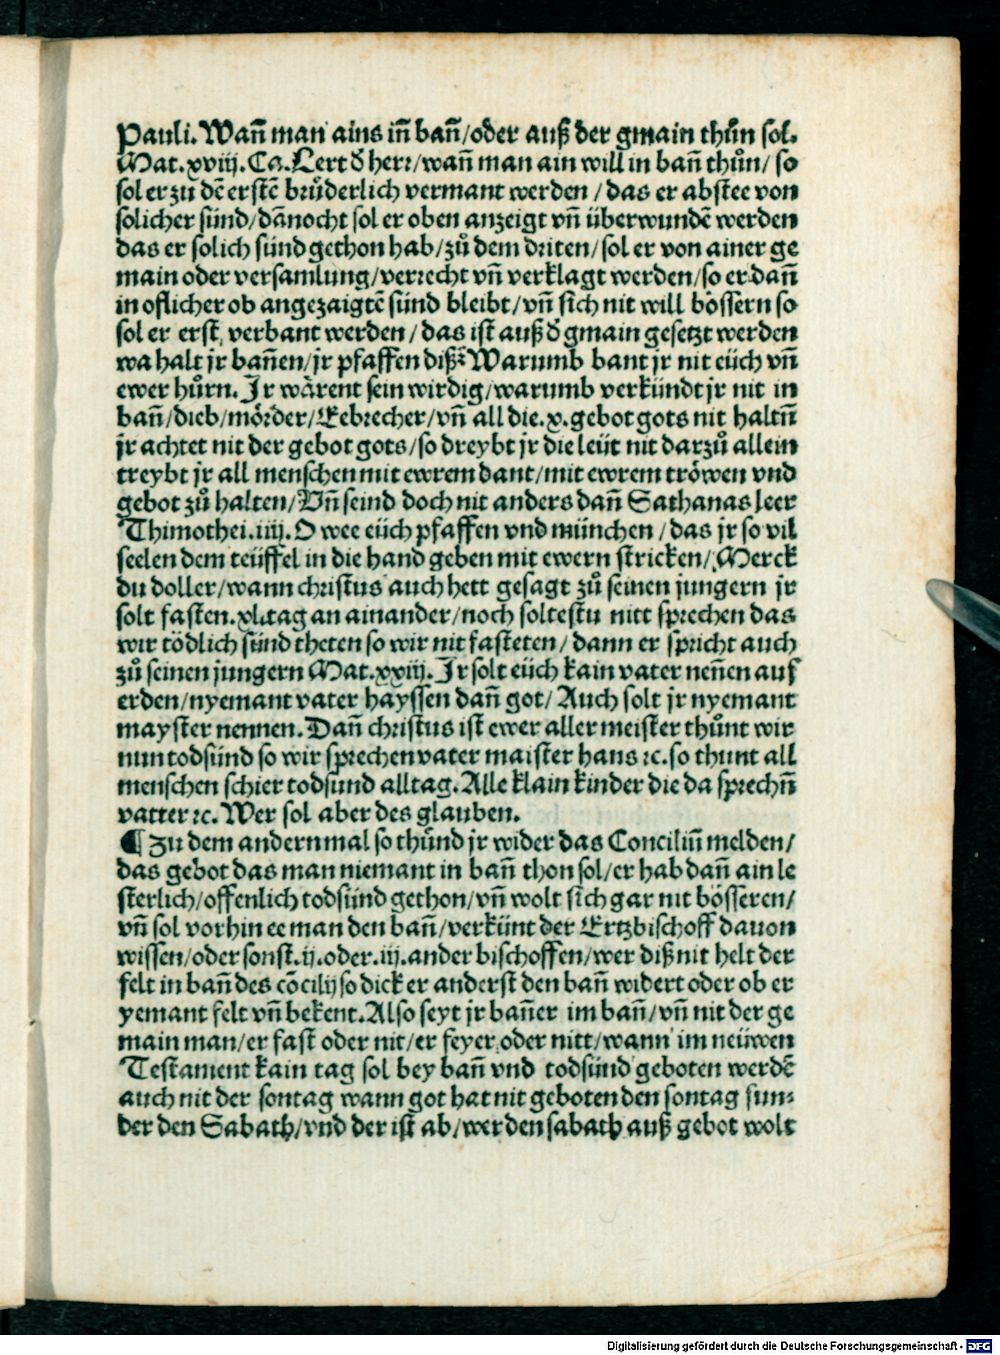 Pauli. Wañ man ains iñ bañ/oder auß der gmain thůn sol.
Mat.xviij. Ca. Lert d̕ herr/wañ man ain will in bañ thůn/ so
sol er zu dē erstē brůderlich vermant werden / das er abstee von
solicher sünd/dānocht sol er oben anzeigt vñ überwundē werden
das er solich sünd gethon hab/zů dem driten/sol er von ainer ge
main oder versamlung/verrecht vñ verklagt werden/so er dañ
in oflicher ob angezaigtē sünd bleibt/vñ sich nit will bössern so
sol er erst verbant werden/das ist auß d̕ gmain gesetzt werden
wa halt jr bañen/jr pfaffen diß? Warumb bant jr nit eüch vñ
ewer hůrn. Jr wärent sein wirdig/warumb verkündt jr nit in
bañ/dieb/mörder/Eebrecher/vñ all die .x. gebot gots nit haltñ
jr achtet nit der gebot gots/so dreybt jr die leüt nit darzů allein
treybt jr all menschen mit ewrem dant/mit ewrem tröwen vnd
gebot zů halten/Vñ seind doch nit anders dañ Sathanas leer
Thimothei.iiij. O wee eüch pfaffen vnd münchen / das jr so vil
seelen dem teüffel in die hand geben mit ewern stricken/Merck
du doller/wann christus auch hett gesagt zů seinen jungern jr
solt fasten.xl.tag an ainander/noch soltestu nitt sprechen das
wir tödlich sünd theten so wir nit fasteten/dann er spricht auch
zů seinen jungern Mat.xxiij. Jr solt eüch kain vater neñen auf
erden/nyemant vater hayssen dañ got/ Auch solt jr nyemant
mayster nennen. Dañ christus ist ewer aller meister thůnt wir
nun todsünd so wir sprechen vater maister hans ꝛc. so thunt all
menschen schier todsund alltag. Alle klain kinder die da sprechñ
vatter ꝛc. Wer sol aber des glauben.
¶ Zu dem andernmal so thůnd jr wider das Conciliū melden/
das gebot das man niemant in bañ thon sol/er hab dañ ain le
sterlich/offenlich todsünd gethon/vñ wolt sich gar nit bösseren/
vñ sol vorhin ee man den bañ/verkünt der Ertzbischoff dauon
wissen/oder sonst .ij. oder .iij. ander bischoffen/wer diß nit helt der
felt in bañ des cōcilij so dick er anderst den bañ widert oder ob er
yemant felt vñ bekent. Also seyt jr bañer im bañ/vñ nit der ge
main man/er fast oder nit/er feyer oder nitt/wann im neüwen
Testament kain tag sol bey bañ vnd todsünd geboten werdē
auch nit der sontag wann got hat nit geboten den sontag sun⸗
der den Sabath/vnd der ist ab/werden sabath auß gebot wolt
Digitalisierung gefördert durch die Deutsche Forschungsgemeinschaft - DFG